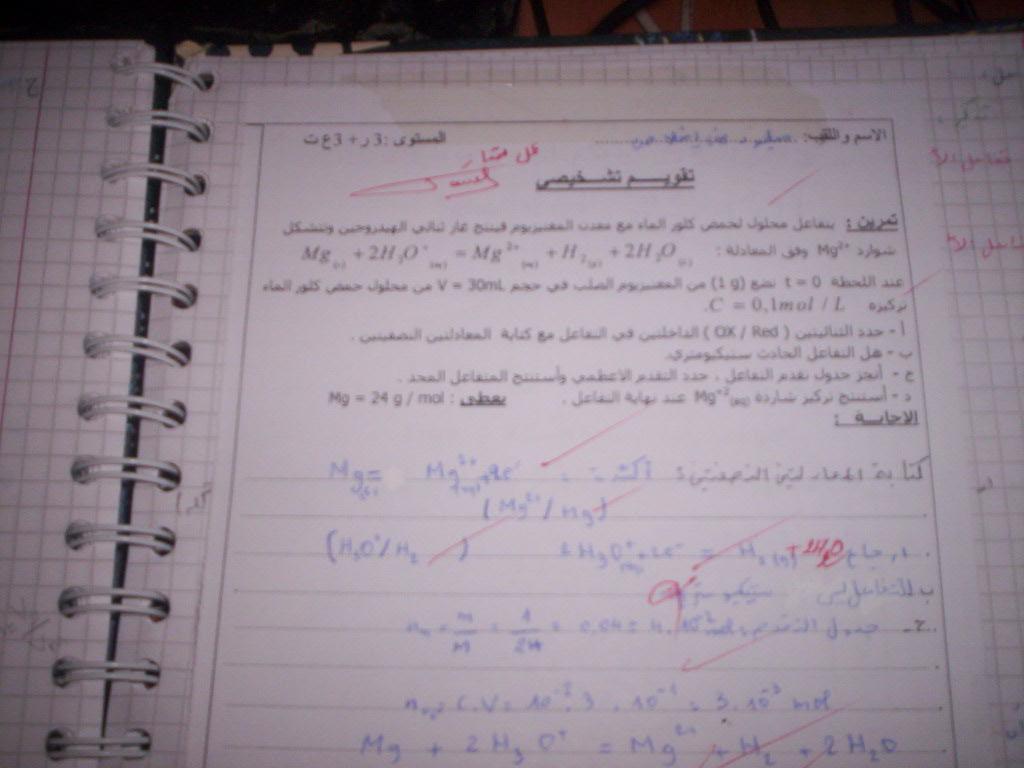 الاسم واللقب: المستوى: 3 ر + 3 ع ت
تقويم تشخيصي
تمرين : يتفاعل محلول لحمض كلور الماء مع معدن المغنيزيوم فينتج غاز ثنائي الهيدروجين وتتشكل
شوارد Mg²⁺ وفق المعادلة : Mg (s) + 2H₃O⁺ (aq) = Mg²⁺ (aq) + H₂ (g) + 2H₂O (l)
عند اللحظة t = 0 نضع (1 g) من المغنيزيوم الصلب في حجم V = 30mL من محلول حمض كلور الماء
تركيزه C = 0,1mol / L.
أ - حدد الثنائيتين ( OX / Red ) الداخلتين في التفاعل مع كتابة المعادلتين النصفيتين .
ب - هل التفاعل الحادث ستيكيومتري.
ج - أنجز جدول تقدم التفاعل ، حدد التقدم الاعظمي وأستنتج المتفاعل المحد .
د - أستنتج تركيز شاردة Mg⁺²(aq) عند نهاية التفاعل . يعطى : Mg = 24 g / mol
الاجابة :
كتابة المعادلتين النصفيتين : Mg(s) = Mg²⁺(aq) + 2e⁻
(Mg²⁺/Mg)
(H₃O⁺/H₂) 2H₃O⁺(aq) + 2e⁻ = H₂(g) + 2H₂O
ب التفاعل ليس ستيكيومتري
ج - جدول التقدم : n = m/M = 1/24 = 0,04 = 4.10⁻² mol
n = C.V = 10⁻¹. 3 . 10⁻² = 3.10⁻³ mol
Mg + 2H₃O⁺ = Mg²⁺ + H₂ + 2H₂O